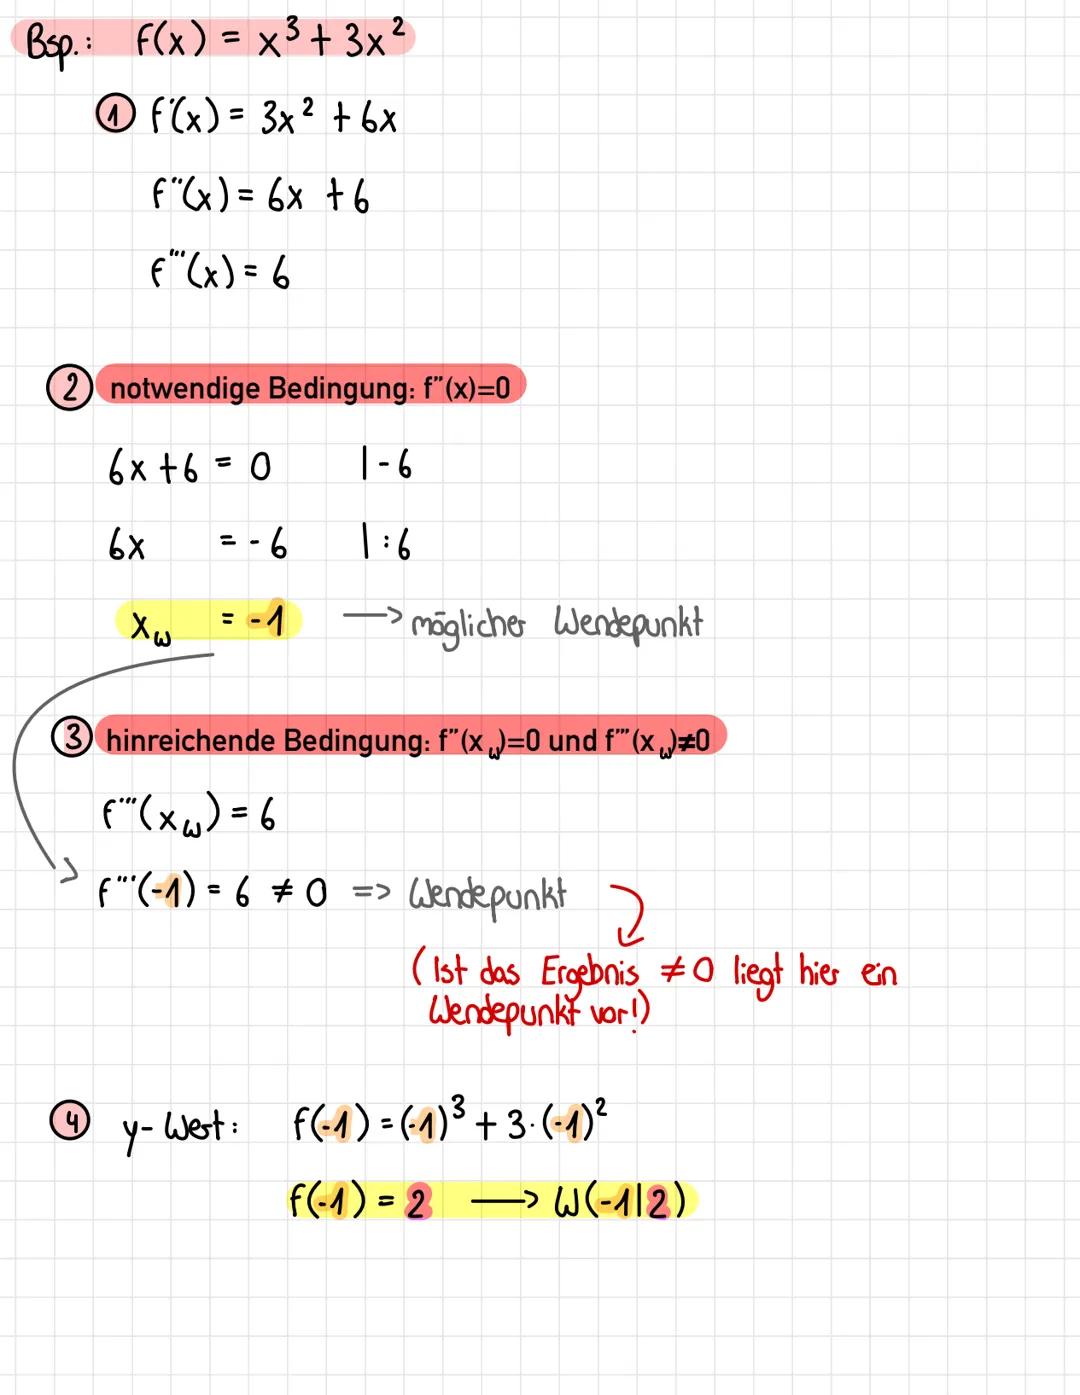 Bsp.: f(x) = x³ + 3x²
① f'(x) = 3x² + 6x
f''(x) = 6x + 6
f'''(x) = 6
② notwendige Bedingung: f''(x)=0
6x + 6 = 0 | - 6
6x = - 6 | : 6
x_w = -1 → möglicher Wendepunkt
③ hinreichende Bedingung: f''(x_w)=0 und f'''(x_w)≠0
f'''(x_w) = 6
f'''(-1) = 6 ≠ 0 => Wendepunkt
(Ist das Ergebnis ≠0 liegt hier ein
Wendepunkt vor!)
④ y-Wert: f(-1) = (-1)³ + 3·(-1)²
f(-1) = 2 → W(-1|2)